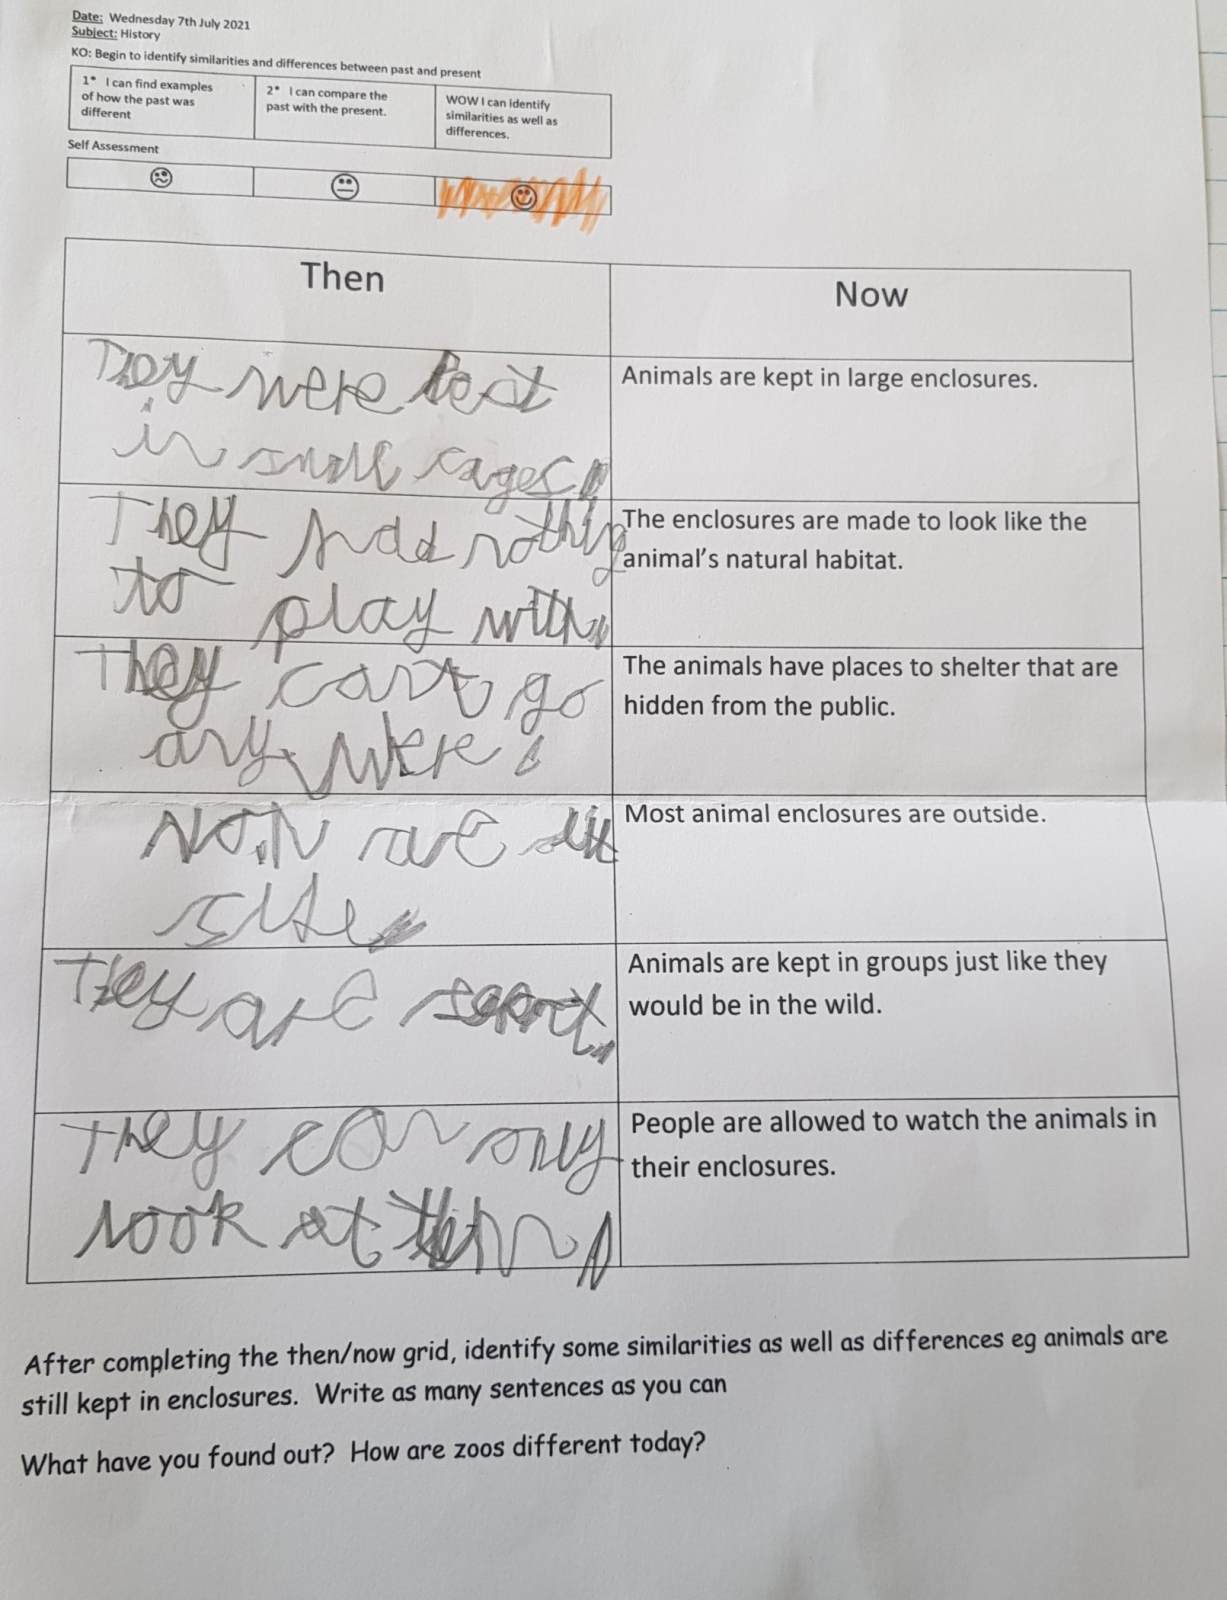 Date: Wednesday 7th July 2021
Subject: History
KO: Begin to identify similarities and differences between past and present
1* I can find examples
of how the past was
different
2* I can compare the
past with the present.
WOW I can identify
similarities as well as
differences.
Self Assessment
Then
Now
They were
in small cages.
Animals are kept in large enclosures.
They had nothing
to play with.
The enclosures are made to look like the
animal's natural habitat.
They cant go
any were.
The animals have places to shelter that are
hidden from the public.
are
Most animal enclosures are outside.
They are
Animals are kept in groups just like they
would be in the wild.
They can only
look at them
People are allowed to watch the animals in
their enclosures.
After completing the then/now grid, identify some similarities as well as differences eg animals are
still kept in enclosures. Write as many sentences as you can
What have you found out? How are zoos different today?